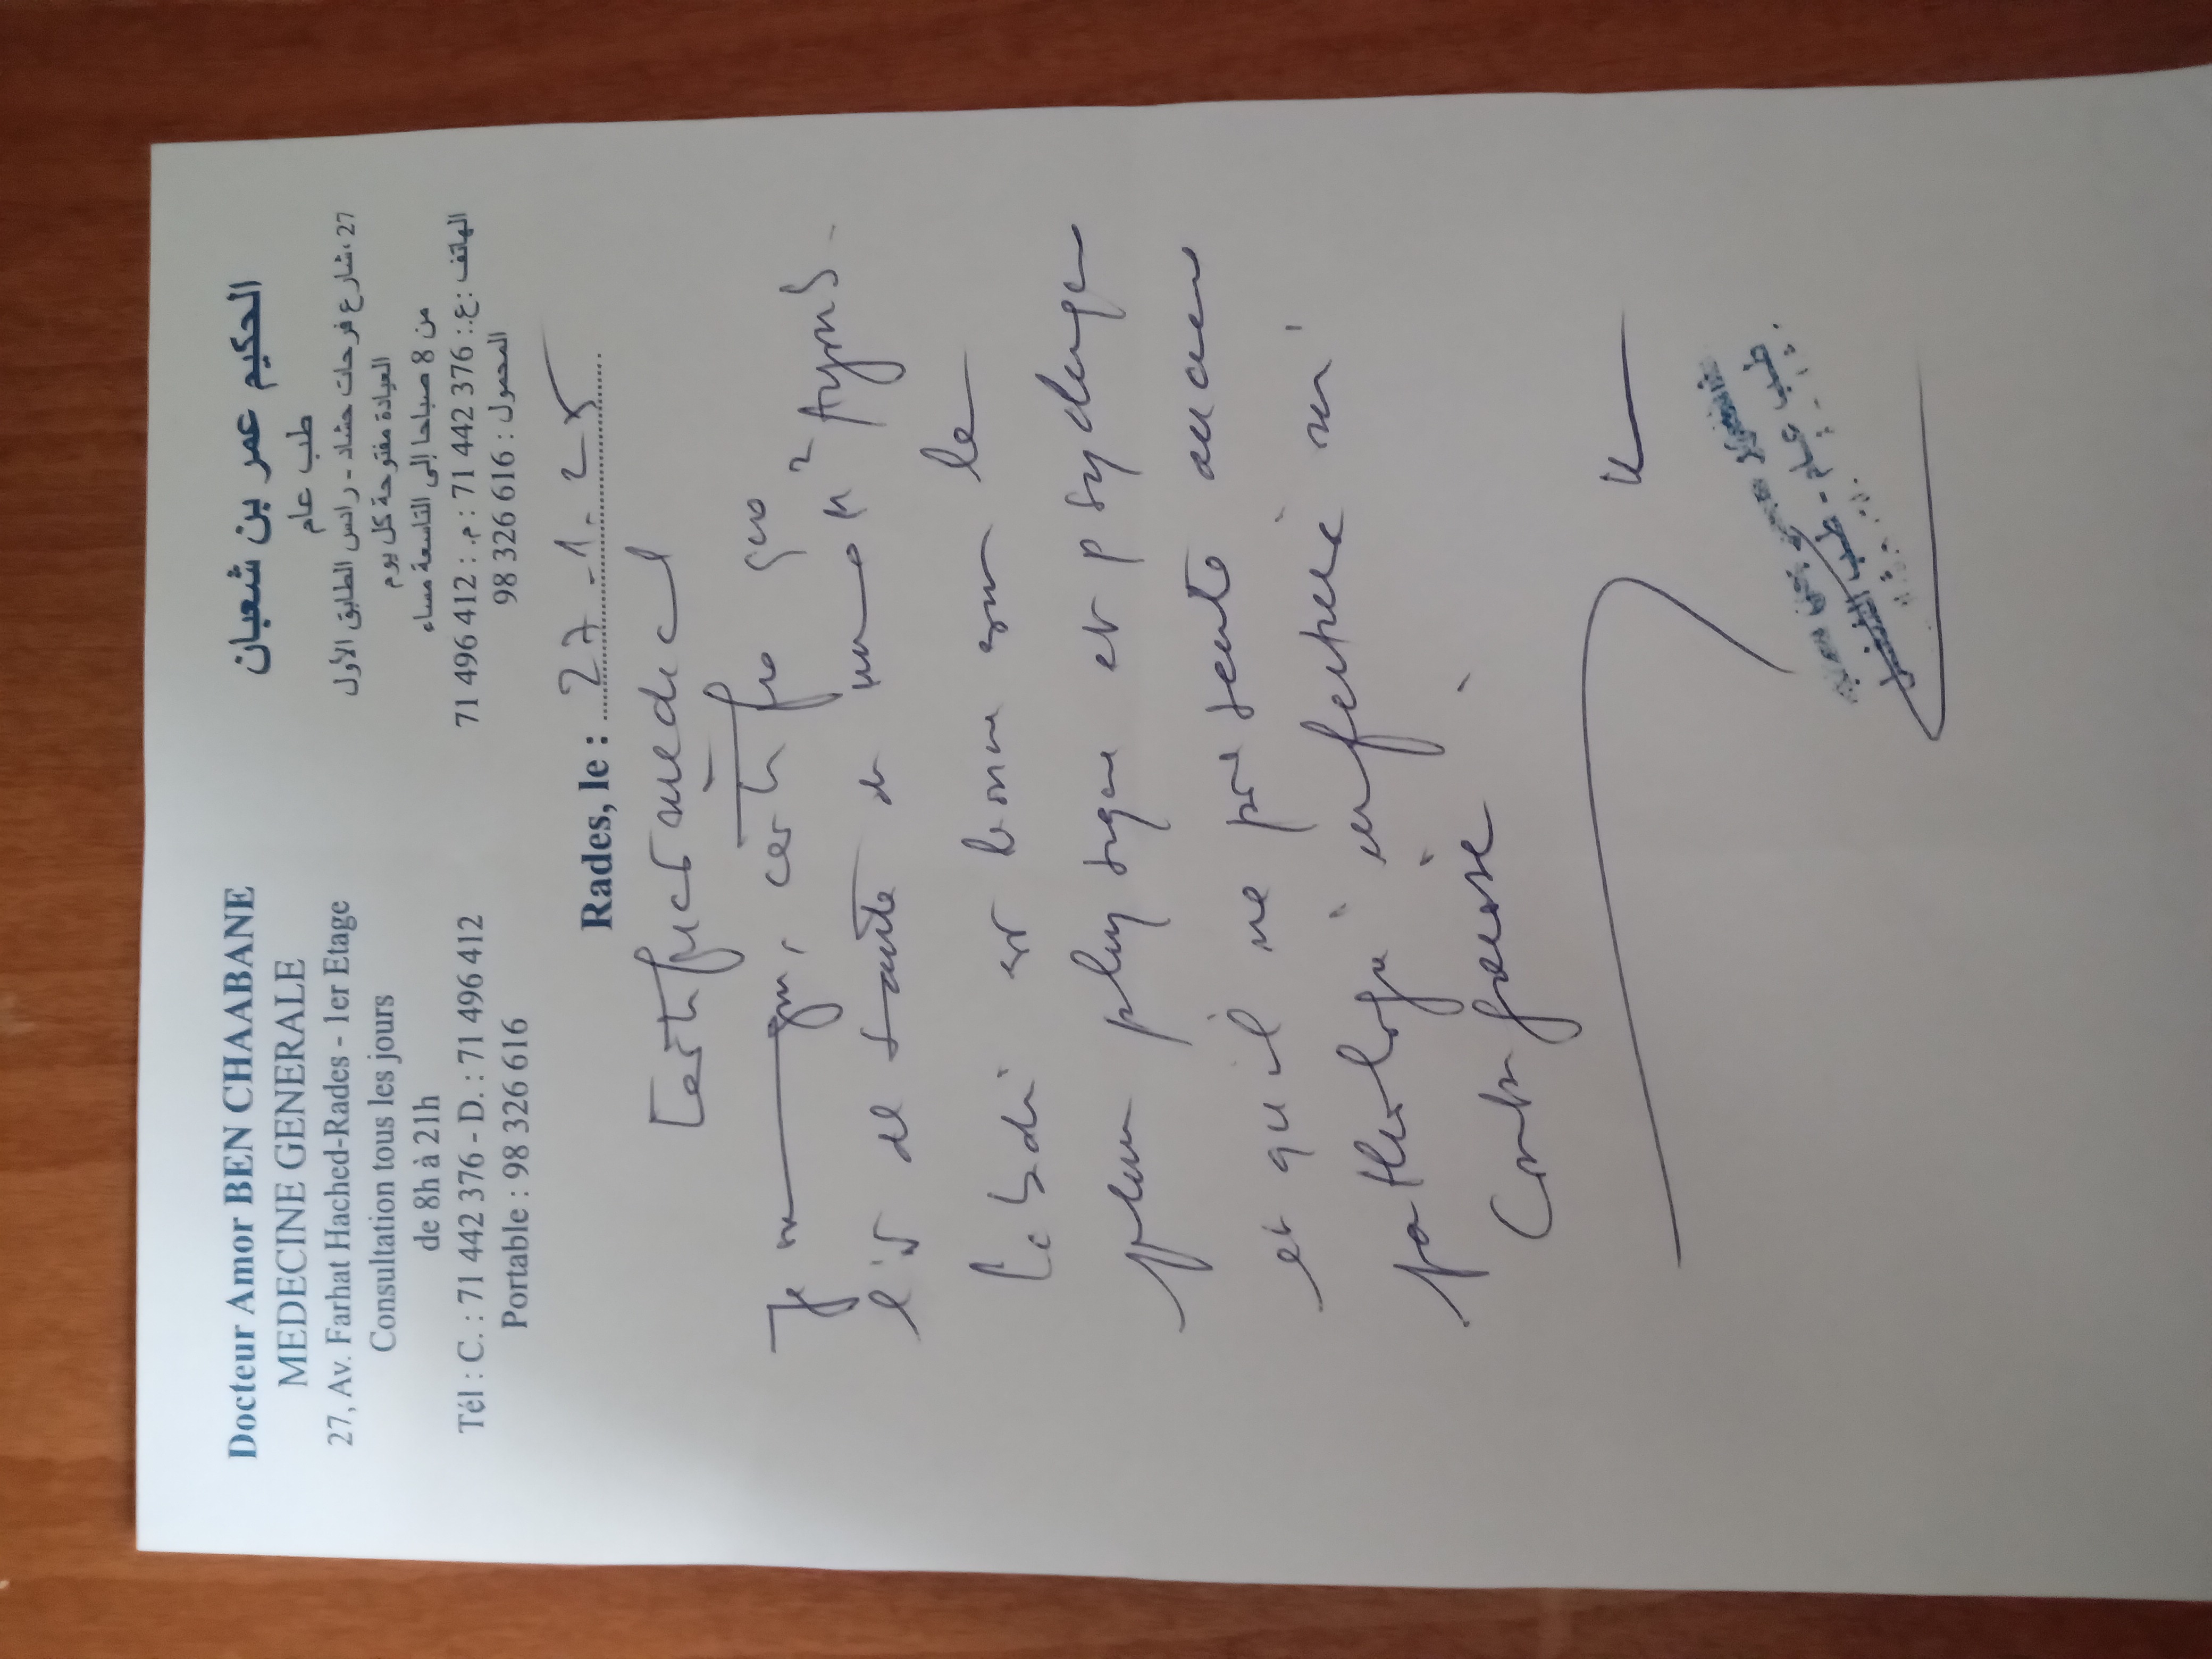 Docteur Amor BEN CHAABANE
MEDECINE GENERALE
27, Av. Farhat Hached-Rades - 1er Etage
Consultation tous les jours
de 8h à 21h
Tél : C. : 71 442 376 - D. : 71 496 412
Portable : 98 326 616
الحكيم عمر بن شعبان
طب عام
27، شارع فرحات حشاد - رادس الطابق الأول
العيادة مفتوحة كل يوم
من 8 صباحا إلى التاسعة مساء
الهاتف : ع. : 376 442 71 : م. : 412 496 71
المحمول : 616 326 98
Rades, le : 27-1-25
Certificat medical
Je certifie que
de santé de
est bonne sur le
plan physique et psychique
et qu'il ne présente aucune
pathologie infectieuse ni
contagieuse
طب عام - طب